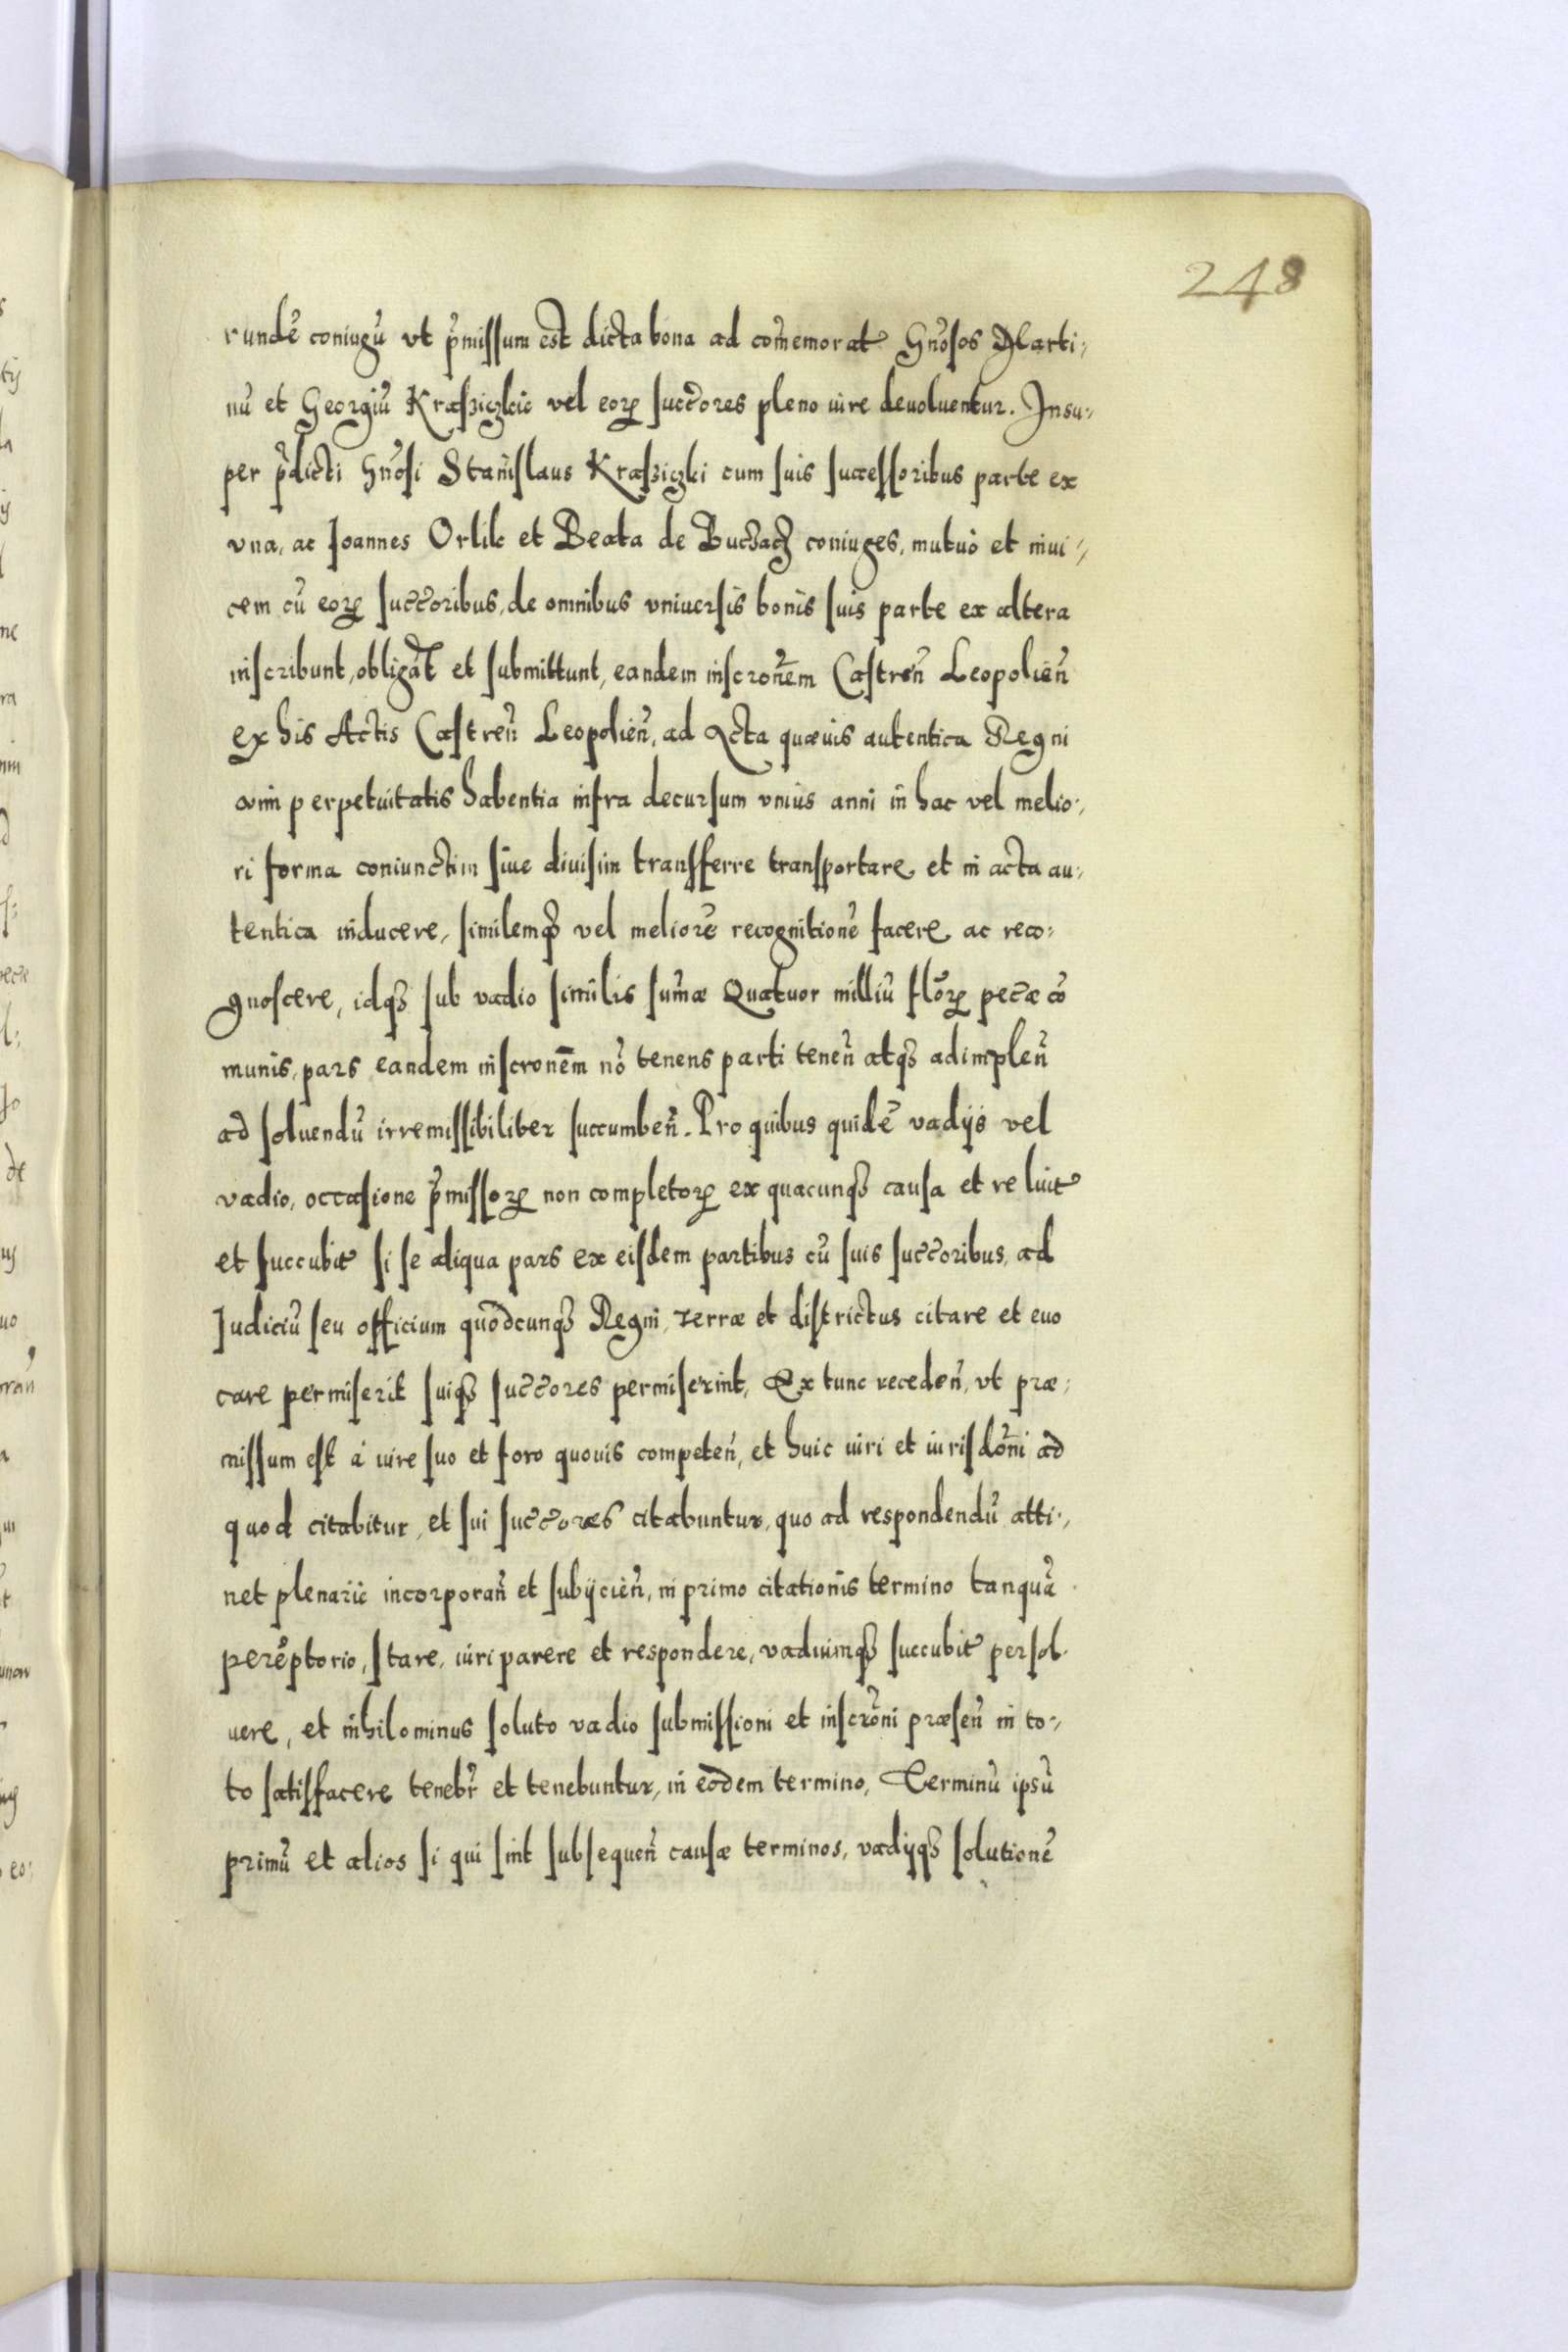 248
rundẽ coniugũ vt p̃missum est dicta bona ad com̃emorat Gñosos Marti,
nũ et Georgiũ Krasziczkie vel eorꝝ succ̃ores pleno iure deuoluentur. Insu,
per p̃dicti Gñosi Stanislaus Krasziczki cum suis successoribus parte ex
vna, ac Joannes Orlik et Beata de Buczacz coniuges, mutuò et inui,
cem cũ eorꝝ succ̃oribus, de omnibus vniuersis bonis suis parte ex altera
inscribunt, obligãt et submittunt, eandem inscroñem Castreñ Leopolieñ
ex his Actis Castreñ Leopolieñ, ad Acta quæuis autentica Regni
æui perpetuitatis habentia infra decursum vnius anni in hac vel melio,
ri forma coniunctim siue diuisim transferre transportare et in acta au,
tentica inducere, similemqꝫ vel meliorẽ recognitionẽ facere ac reco,
gnoscere, idqꝫ sub vadio similis sum̃æ Quatuor milliũ flõrꝝ pec̃æ cõ
munis, pars eandem inscronẽm nõ tenens parti teneñ atqꝫ adimpleñ
ad soluendũ irremissibiliter succumbeñ. Pro quibus quidẽ vadijs vel
vadio, occasione p̃missorꝝ non completorꝝ ex quacunqꝫ causa et re luit
et succubit si se aliqua pars ex eisdem partibus cũ suis succ̃oribus, ad
Judiciũ seu officium quodcunqꝫ Regni, terræ et districtus citare et euo
care permiserit suiqꝫ succ̃ores permiserint, Ex tunc recedeñ, vt præ,
missum est à iure suo et foro quouis competeñ, et huic iuri et iurisdõni ad
quod citabitur, et sui succ̃ores citabuntur, quo ad respondendũ atti,
net plenariè incorporañ et subijcieñ, in primo citationis termino tanquã
perẽptorio, stare, iuri parere et respondere, vadiumqꝫ succubit persol,
uere, et nihilominus soluto vadio submissioni et inscrõni præseñ in to,
to satisfacere tenebr̃ et tenebuntur, in eodem termino, Terminũ ipsũ
primũ et alios si qui sint subsequeñ causæ terminos, vadijqꝫ solutionẽ